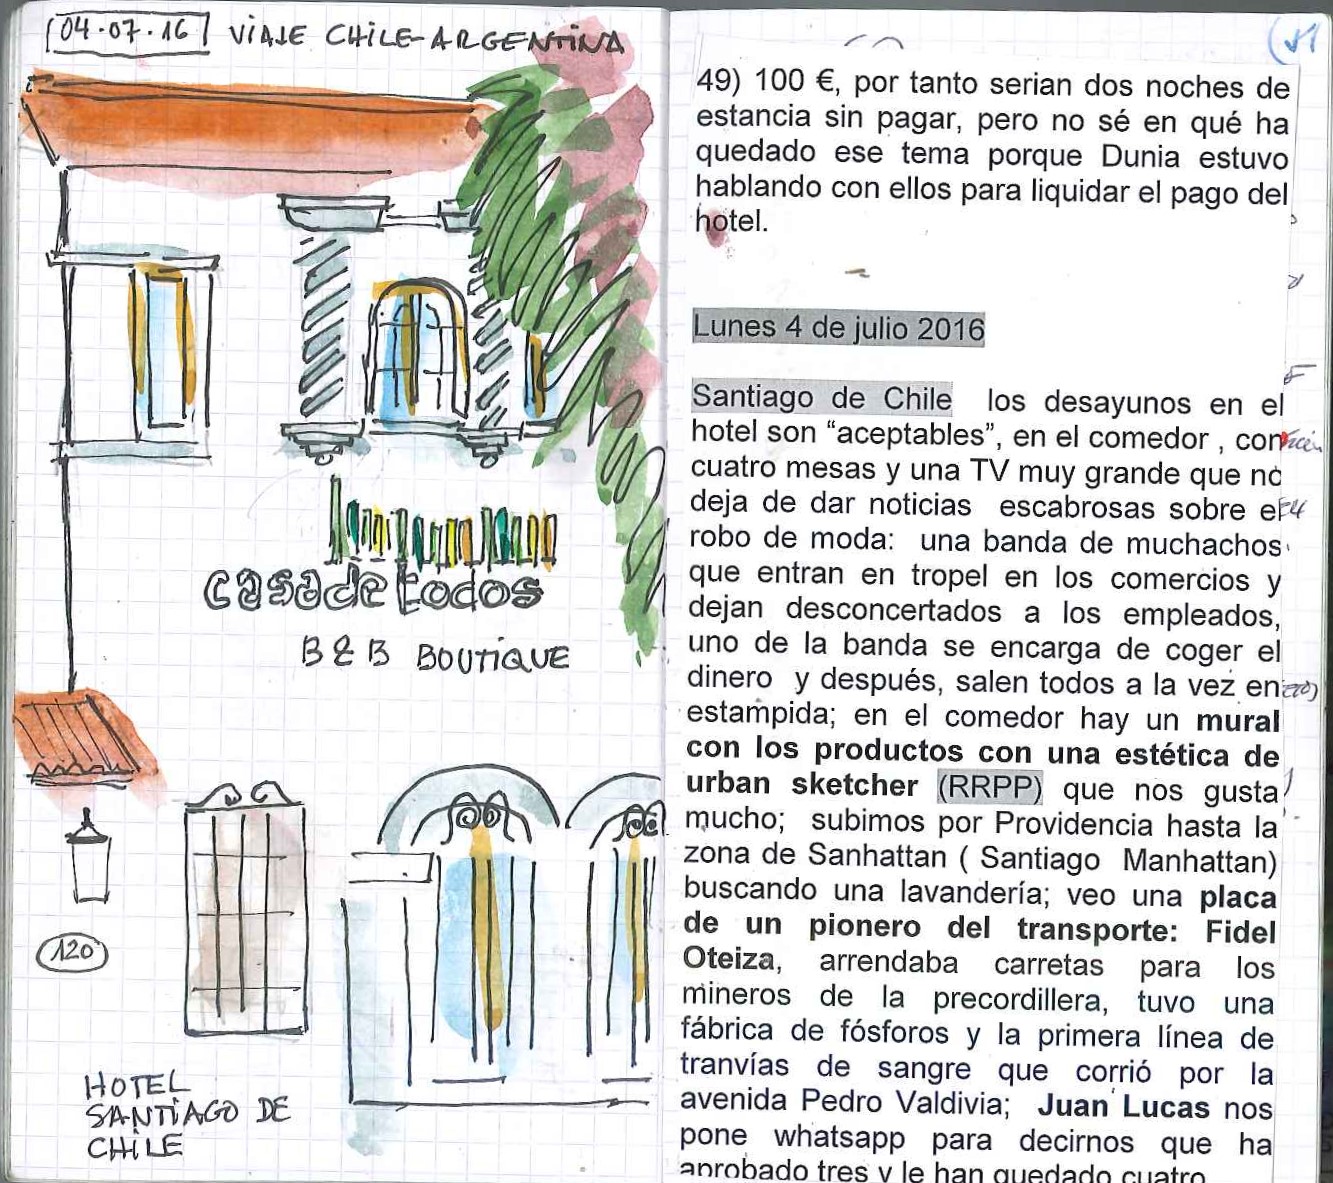 04.07.16 VIAJE CHILE-ARGENTINA
casa de todos
B&B BOUTIQUE
120
HOTEL
SANTIAGO DE
CHILE
49) 100 €, por tanto serian dos noches de
estancia sin pagar, pero no sé en qué ha
quedado ese tema porque Dunia estuvo
hablando con ellos para liquidar el pago del
hotel.
Lunes 4 de julio 2016
Santiago de Chile los desayunos en el
hotel son “aceptables”, en el comedor , con
cuatro mesas y una TV muy grande que no
deja de dar noticias escabrosas sobre el
robo de moda: una banda de muchachos
que entran en tropel en los comercios y
dejan desconcertados a los empleados,
uno de la banda se encarga de coger el
dinero y después, salen todos a la vez en
estampida; en el comedor hay un mural
con los productos con una estética de
urban sketcher (RRPP) que nos gusta
mucho; subimos por Providencia hasta la
zona de Sanhattan ( Santiago Manhattan)
buscando una lavandería; veo una placa
de un pionero del transporte: Fidel
Oteiza, arrendaba carretas para los
mineros de la precordillera, tuvo una
fábrica de fósforos y la primera línea de
tranvías de sangre que corrió por la
avenida Pedro Valdivia; Juan Lucas nos
pone whatsapp para decirnos que ha
aprobado tres y le han quedado cuatro